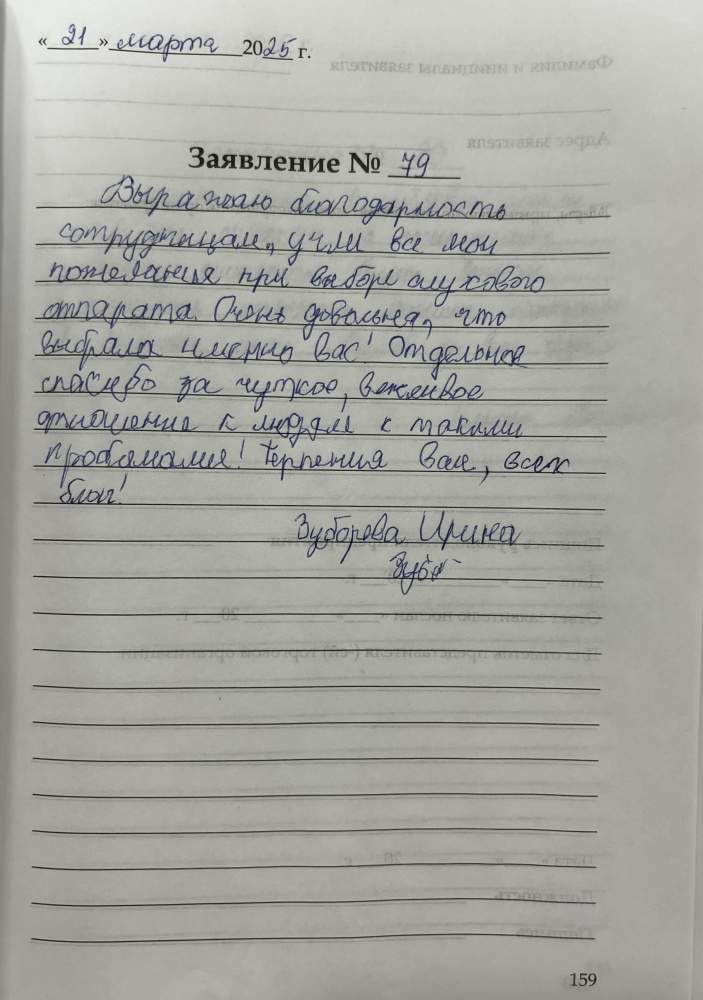 «21» марта 2025 г.
Заявление № 79
Выражаю благодарность
сотрудницам, учли все мои
пожелания при выборе слухового
аппарата. Очень довольна, что
выбрала именно вас! Отдельное
спасибо за чуткое, вежливое
отношение к людям с такими
проблемами! Терпения Вам, всех
благ!
Зуборева Ирина
159